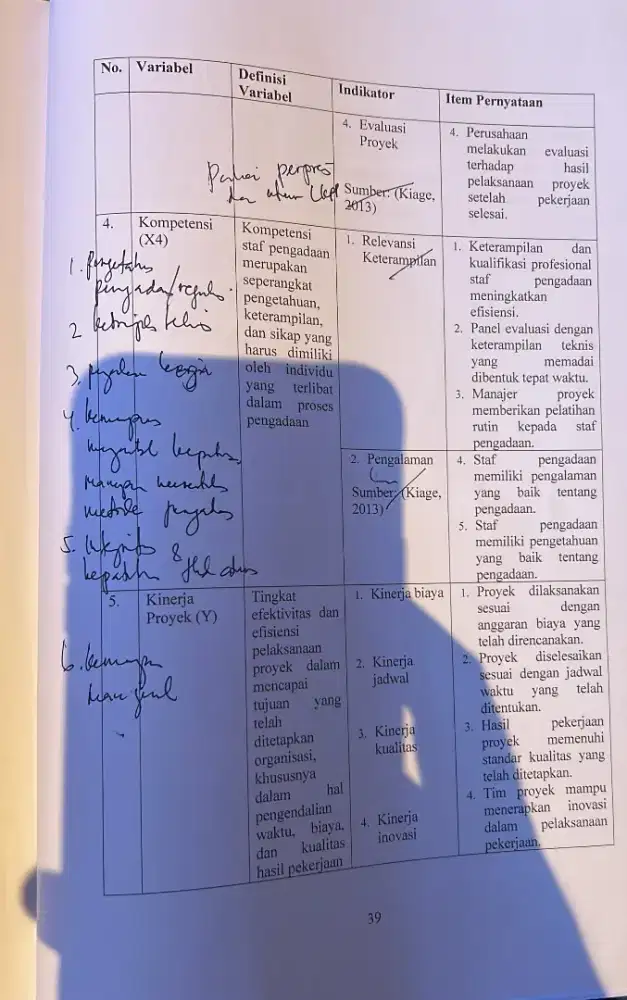 No. Variabel Definisi Variabel Indikator Item Pernyataan
4. Evaluasi
Proyek
Sumber: (Kiage,
2013)
4. Perusahaan
melakukan evaluasi
terhadap hasil
pelaksanaan proyek
setelah pekerjaan
selesai.
Pakai perpres
dan
4. Kompetensi
(X4)
Kompetensi
staf pengadaan
merupakan
seperangkat
pengetahuan,
keterampilan,
dan sikap yang
harus dimiliki
oleh individu
yang terlibat
dalam proses
pengadaan
1. Relevansi
Keterampilan
1. Keterampilan dan
kualifikasi profesional
staf pengadaan
meningkatkan
efisiensi.
2. Panel evaluasi dengan
keterampilan teknis
yang memadai
dibentuk tepat waktu.
3. Manajer proyek
memberikan pelatihan
rutin kepada staf
pengadaan.
2. Pengalaman
Sumber: (Kiage,
2013)
4. Staf pengadaan
memiliki pengalaman
yang baik tentang
pengadaan.
5. Staf pengadaan
memiliki pengetahuan
yang baik tentang
pengadaan.
1.
2
3.
4.
metode
5.
&
6.
5. Kinerja
Proyek (Y)
Tingkat
efektivitas dan
efisiensi
pelaksanaan
proyek dalam
mencapai
tujuan yang
telah
ditetapkan
organisasi,
khususnya
dalam hal
pengendalian
waktu, biaya,
dan kualitas
hasil pekerjaan
1. Kinerja biaya
2. Kinerja
jadwal
3. Kinerja
kualitas
4. Kinerja
inovasi
1. Proyek dilaksanakan
sesuai dengan
anggaran biaya yang
telah direncanakan.
2. Proyek diselesaikan
sesuai dengan jadwal
waktu yang telah
ditentukan.
3. Hasil pekerjaan
proyek memenuhi
standar kualitas yang
telah ditetapkan.
4. Tim proyek mampu
menerapkan inovasi
dalam pelaksanaan
pekerjaan.
39